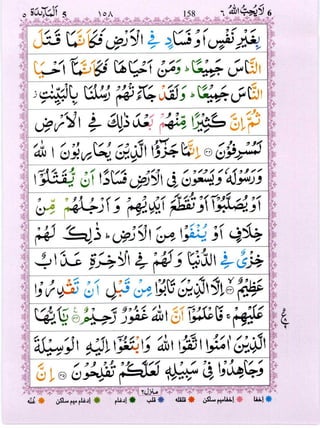 المآئدة ٥ ١٥٨ 158 لا يحب الله ٦ 6
بِغَيْرِ نَفْسٍ اَوْ فَسَادٍ فِي الْاَرْضِ فَكَاَنَّمَا قَتَلَ
النَّاسَ جَمِيْعًا ؕ وَمَنْ اَحْيَاهَا فَكَاَنَّمَاۤ اَحْيَا
النَّاسَ جَمِيْعًا ؕ وَلَقَدْ جَآءَتْهُمْ رُسُلُنَا بِالْبَيِّنٰتِ ز
ثُمَّ اِنَّ كَثِيْرًا مِّنْهُمْ بَعْدَ ذٰلِكَ فِي الْاَرْضِ
لَمُسْرِفُوْنَ ﴿٣٢﴾ اِنَّمَا جَزٰٓؤُا الَّذِيْنَ يُحَارِبُوْنَ اللّٰهَ
وَرَسُوْلَهٗ وَيَسْعَوْنَ فِي الْاَرْضِ فَسَادًا اَنْ يُّقَتَّلُوْۤا
اَوْ يُصَلَّبُوْۤا اَوْ تُقَطَّعَ اَيْدِيْهِمْ وَاَرْجُلُهُمْ مِّنْ
خِلَافٍ اَوْ يُنْفَوْا مِنَ الْاَرْضِ ؕ ذٰلِكَ لَهُمْ
خِزْيٌ فِي الدُّنْيَا وَلَهُمْ فِي الْاٰخِرَةِ عَذَابٌ
عَظِيْمٌ ﴿٣٣﴾ اِلَّا الَّذِيْنَ تَابُوْا مِنْ قَبْلِ اَنْ تَقْدِرُوْا
عَلَيْهِمْ ۚ فَاعْلَمُوْۤا اَنَّ اللّٰهَ غَفُوْرٌ رَّحِيْمٌ ﴿٣٤﴾ يٰۤاَيُّهَا
الَّذِيْنَ اٰمَنُوا اتَّقُوا اللّٰهَ وَابْتَغُوْۤا اِلَيْهِ الْوَسِيْلَةَ
وَجَاهِدُوْا فِيْ سَبِيْلِهٖ لَعَلَّكُمْ تُفْلِحُوْنَ ﴿٣٥﴾ اِنَّ
منزل٢
اخفا اخفامیم ساکن قلقله قلب ادغام ادغام میم ساکن غنه